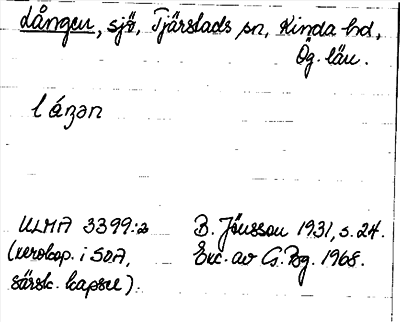 Lången, sjö, Tjärstads sn, Kinda hd,
Ög. län.
låŋən
ULMA 3399:2 B. Jönsson 1931, s. 24.
(xerokop. i SOA, Exc. av G. Bg. 1968.
särsk. kapsel).